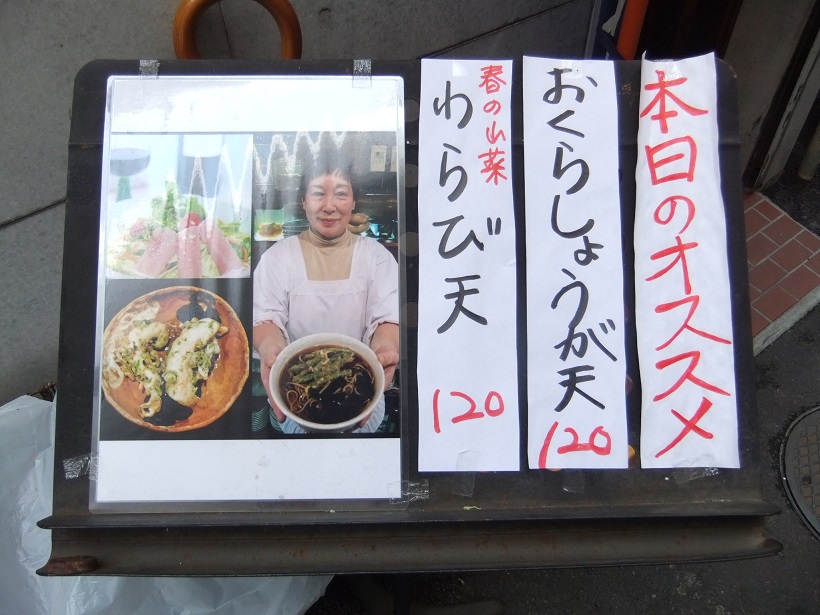 本日のオススメ
おくらしょうが天
120
春の山菜
わらび天
120